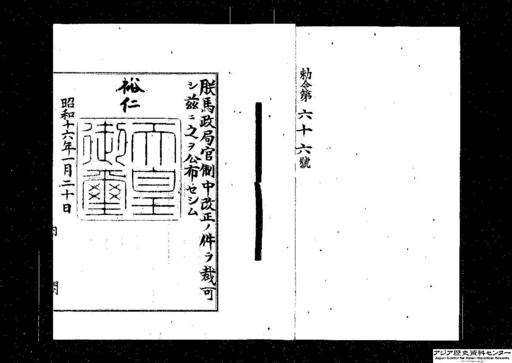 勅令第六十六號
朕馬政局官制中改正ノ件ヲ裁可
シ茲ニ之ヲ公布セシム
裕仁
天皇御璽
昭和十六年一月二十日
内閣
アジア歴史資料センター
Japan Center for Asian Historical Records